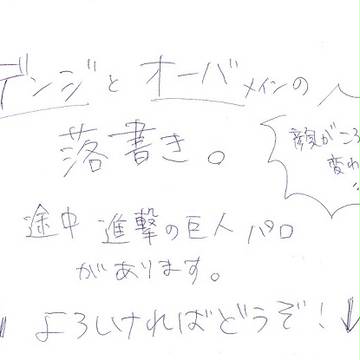 デンジとオーバメインの
落書き。
顔がころ
変わ
途中 進撃の巨人 パロ
があります。
よろしければどうぞ!